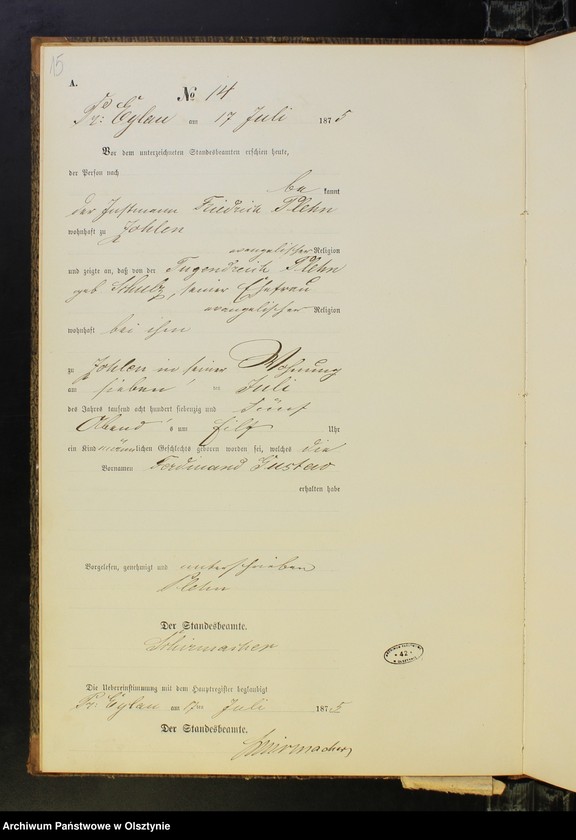 15
A.
№ 14
Pr: Eylau am 17 Juli 1875
Vor dem unterzeichneten Standesbeamten erschien heute,
der Person nach
be kannt
der Instmann Friedrich Plehn
wohnhaft zu Johlen
evangelischer Religion
und zeigte an, daß von der Tugendreich Plehn
geb. Schulz, seiner Ehefrau
evangelischer Religion
wohnhaft bei ihm
zu Johlen in seiner Wohnung
am sieben Juli
des Jahres tausend acht hundert siebenzig und fünf
Abend s um Uhr
ein Kind männlichen Geschlechts geboren worden sei, welches die
Vornamen Ferdinand Gustav
erhalten habe
Vorgelesen, genehmigt und unterschrieben
Plehn
Der Standesbeamte.
Schirmacher
Die Uebereinstimmung mit dem Hauptregister beglaubigt
Pr: Eylau am 17ten Juli 1875
Der Standesbeamte.
Schirmacher
42
Archiwum Państwowe w Olsztynie